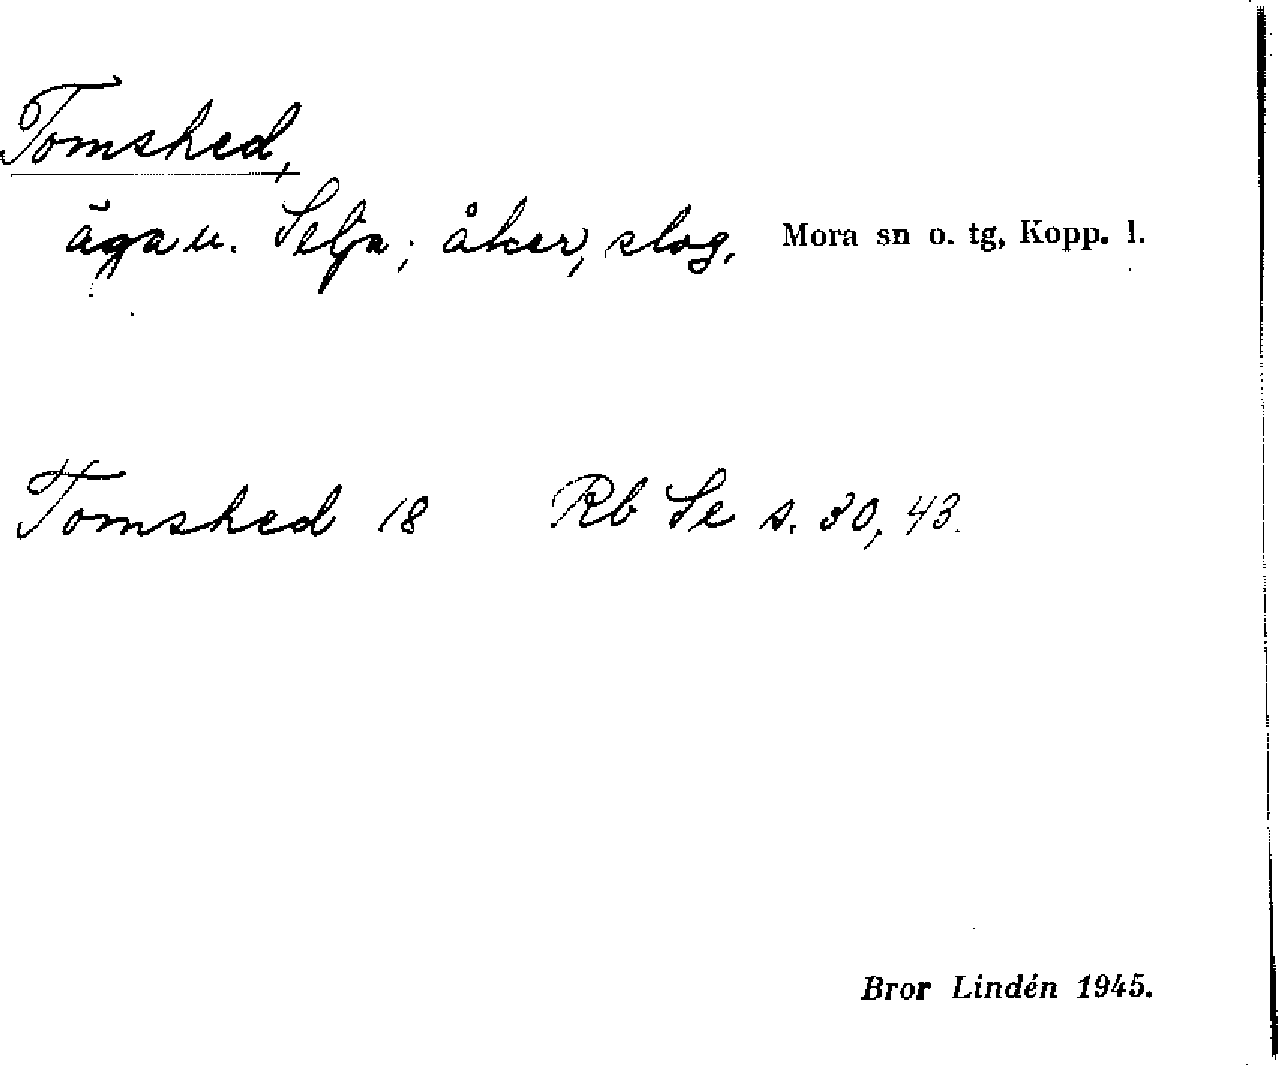 Tomshed,
äga u. Selja; åker, slog, Mora sn o. tg, Kopp. l.
Tomshed 18 Rb Se s. 30, 43.
Bror Lindén 1945.